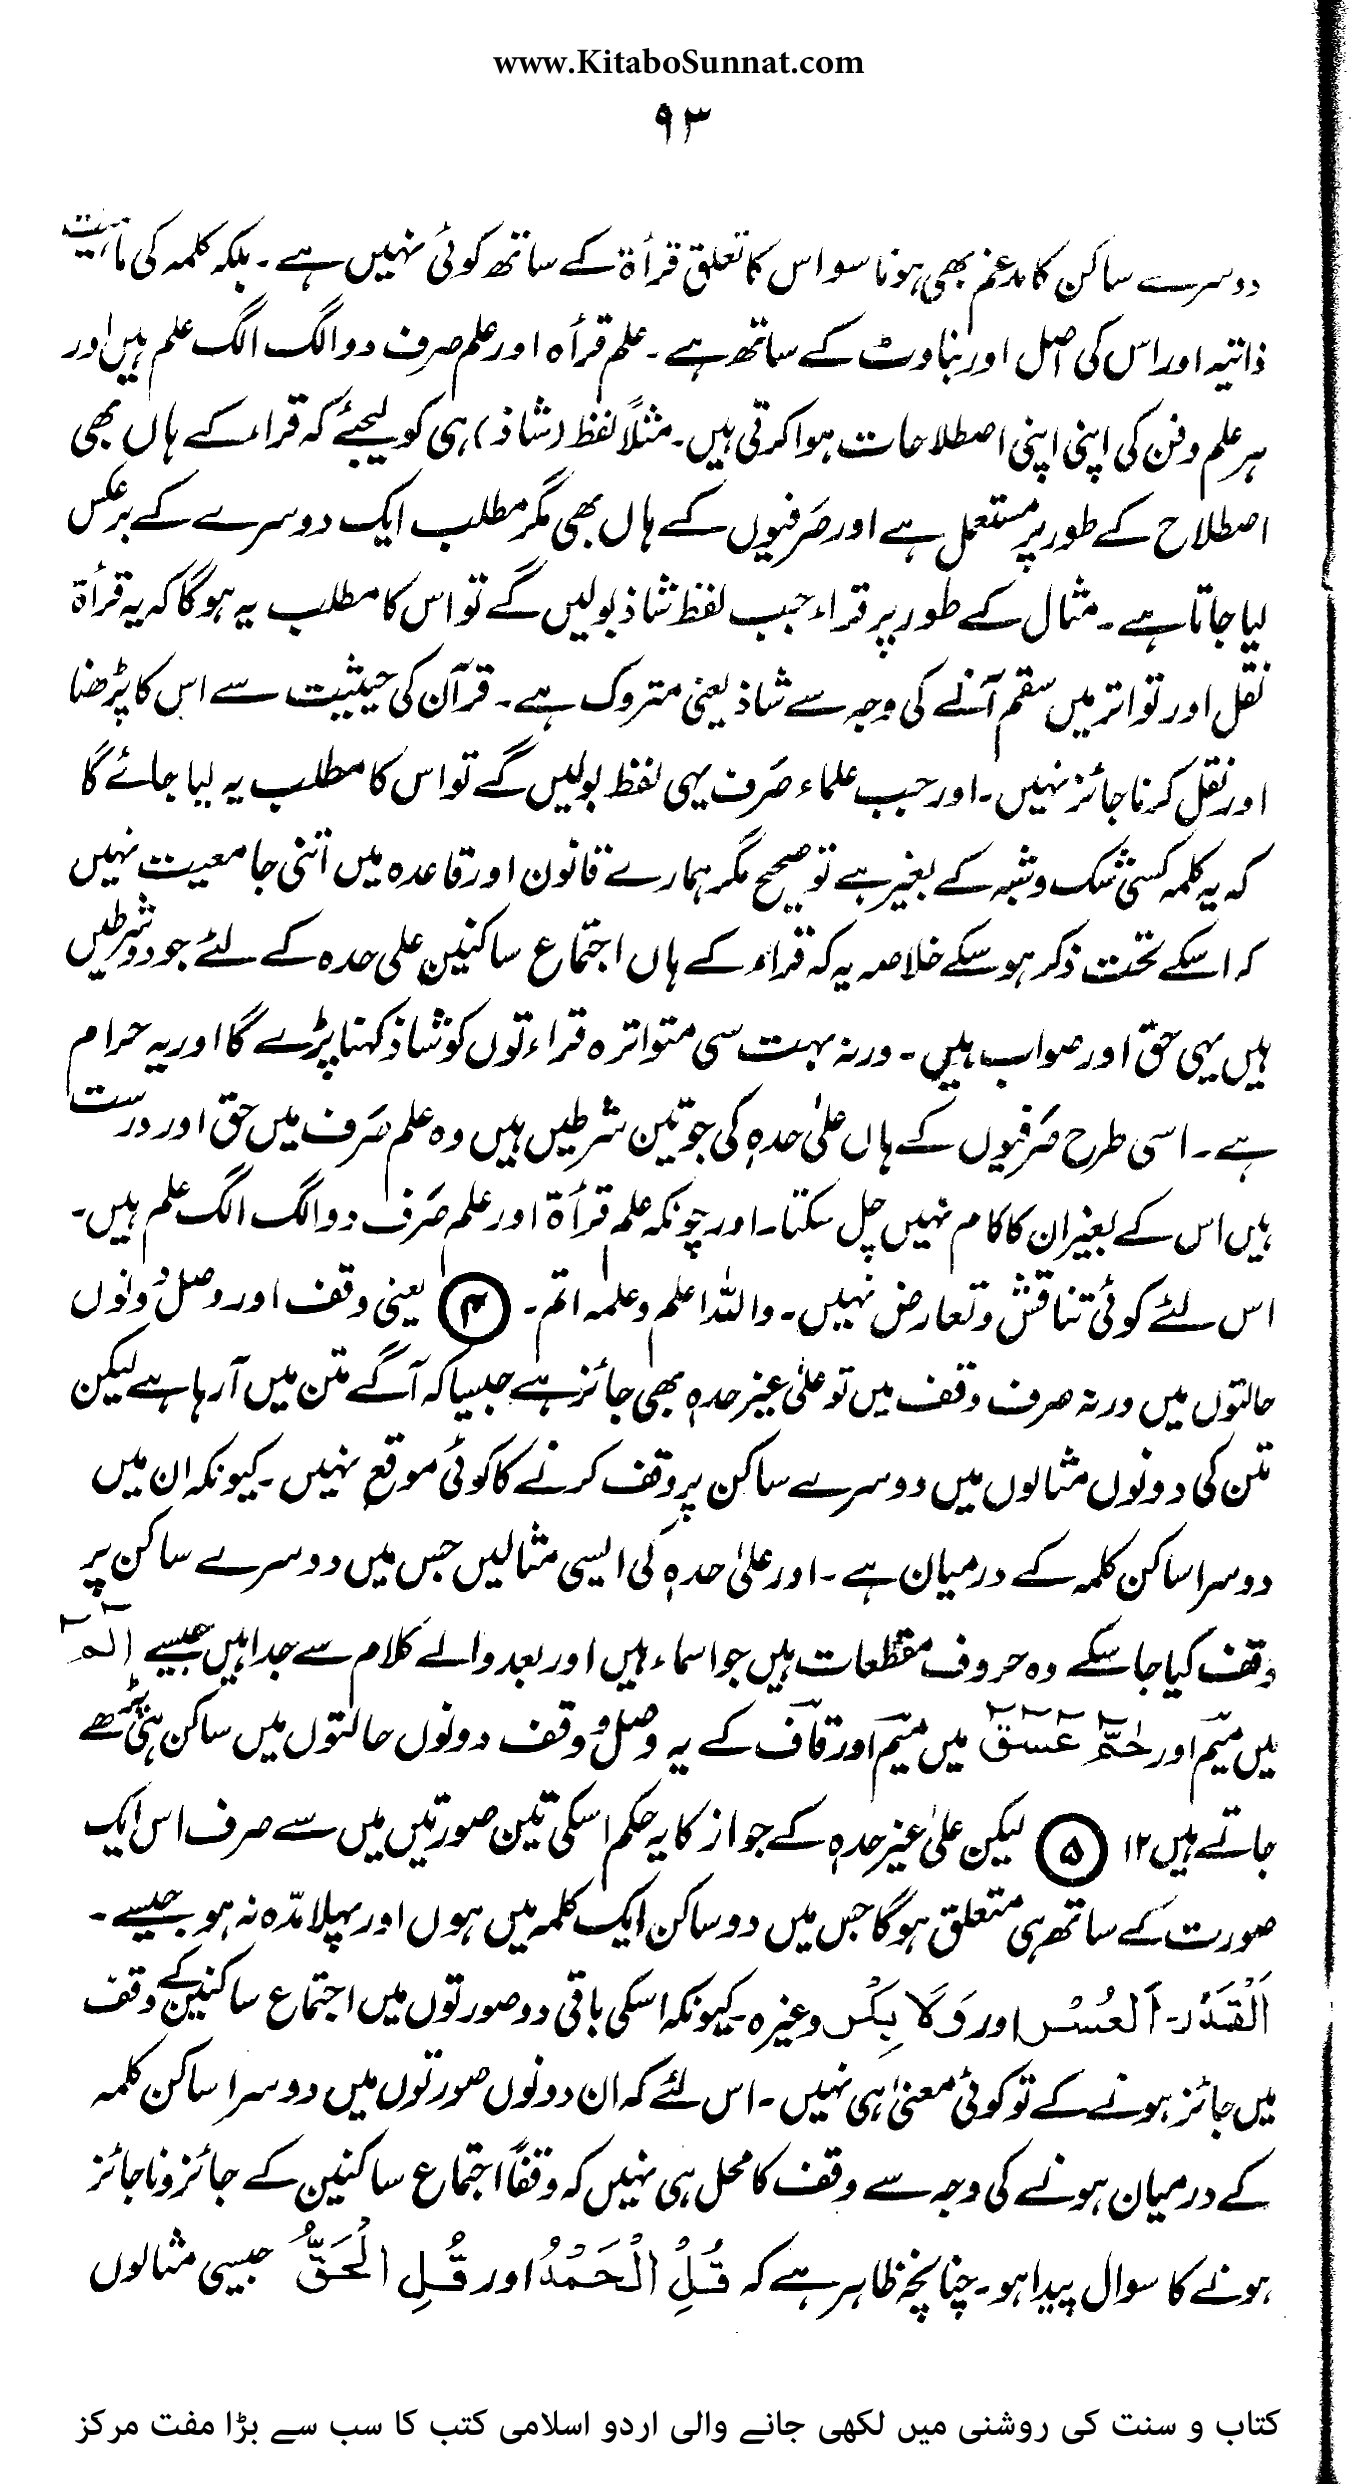 www.KitaboSunnat.com
۹۳
دوسرے ساکن کا مدغم بھی ہونا سو اس کا تعلق قرأۃ کے ساتھ کوئی نہیں ہے۔ بلکہ کلمہ کی ماہیت
ذاتیہ اور اس کی اصل اور بناوٹ کے ساتھ ہے۔ علم قرأہ اور علم صرف دو الگ الگ علم ہیں اور
ہر علم و فن کی اپنی اپنی اصطلاحات ہوا کرتی ہیں۔ مثلاً لفظ (شاذ) ہی کو لیجئے کہ قراء کے ہاں بھی
اصطلاح کے طور پر مستعمل ہے اور صَرفیوں کے ہاں بھی مگر مطلب ایک دوسرے کے برعکس
لیا جاتا ہے۔ مثال کے طور پر قراء جب لفظ شاذ بولیں گے تو اس کا مطلب یہ ہوگا کہ یہ قرأۃ
نقل اور تواتر میں سقم آنے کی وجہ سے شاذ یعنی متروک ہے۔ قرآن کی حیثیت سے اس کا پڑھنا
اور نقل کرنا جائز نہیں۔ اور جب علماء صَرف یہی لفظ بولیں گے تو اس کا مطلب یہ لیا جائے گا
کہ یہ کلمہ کسی شک و شبہ کے بغیر ہے تو صحیح مگر ہمارے قانون اور قاعدہ میں اتنی جامعیت نہیں
کہ اسکے تحت ذکر ہو سکے خلاصہ یہ کہ قراء کے ہاں اجتماع ساکنین علی حدہ کے لئے جو دو شرطیں
ہیں یہی حق اور صواب ہیں۔ ورنہ بہت سی متواترہ قراءتوں کو شاذ کہنا پڑے گا اور یہ حرام
ہے۔ اسی طرح صَرفیوں کے ہاں علیٰ حدہٖ کی جو تین شرطیں ہیں وہ علم صَرف میں حق اور درست
ہیں اس کے بغیر ان کا کام نہیں چل سکتا۔ اور چونکہ علم قرأۃ اور علم صَرف دو الگ الگ علم ہیں۔
اس لئے کوئی تناقض و تعارض نہیں۔ واللہ اعلم و علمہ اتم۔ ۴ یعنی وقف اور وصل دونوں
حالتوں میں ورنہ صرف وقف میں تو علیٰ غیر حدہٖ بھی جائز ہے جیسا کہ آگے متن میں آ رہا ہے لیکن
متن کی دونوں مثالوں میں دوسرے ساکن پر وقف کرنے کا کوئی موقع نہیں۔ کیونکہ ان میں
دوسرا ساکن کلمہ کے درمیان ہے۔ اور علیٰ حدہٖ کی ایسی مثالیں جس میں دوسرے ساکن پر
وقف کیا جا سکے وہ حروف مقطعات ہیں جو اسماء ہیں اور بعد والے کلام سے جدا ہیں جیسے الٓمٓ
میں میٓم اور حٰمٓ عٓسٓقٓ میں میٓم اور قآف کے یہ وصل و وقف دونوں حالتوں میں ساکن ہی پڑھے
جاتے ہیں ۱۲ ۵ لیکن علیٰ غیر حدہٖ کے جواز کا یہ حکم اسکی تین صورتیں میں سے صرف اس ایک
صورت کے ساتھ ہی متعلق ہوگا جس میں دو ساکن ایک کلمہ میں ہوں اور پہلا مدّہ نہ ہو جیسے۔
اَلْقَدْر۔ اَلْعُسْر اور وَلَا بِکْر وغیرہ۔ کیونکہ اسکی باقی دو صورتوں میں اجتماع ساکنین کے وقف
میں جائز ہونے کے تو کوئی معنیٰ ہی نہیں۔ اس لئے کہ ان دونوں صورتوں میں دوسرا ساکن کلمہ
کے درمیان ہونے کی وجہ سے وقف کا محل ہی نہیں کہ وقفاً اجتماع ساکنین کے جائز و ناجائز
ہونے کا سوال پیدا ہو۔ چنانچہ ظاہر ہے کہ قُلِ الْحَمْدُ اور قُلِ الْحَقُّ جیسی مثالوں
کتاب و سنت کی روشنی میں لکھی جانے والی اردو اسلامی کتب کا سب سے بڑا مفت مرکز